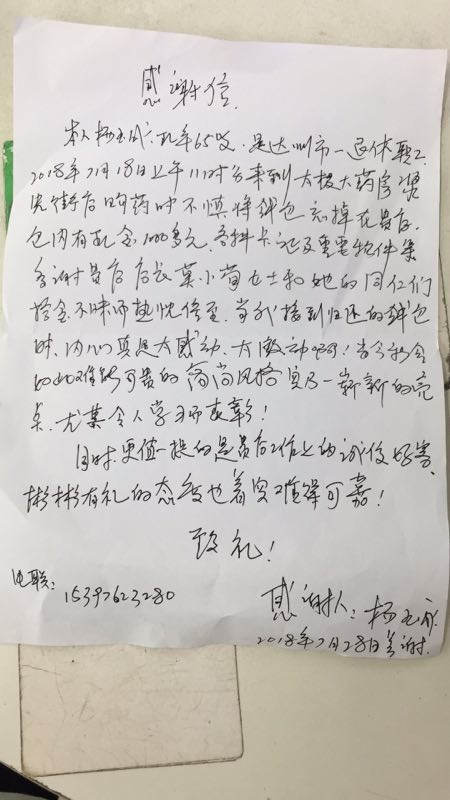 感谢信
本人杨玉成,现年65岁,是达州市一退休职工
2018年7月18日上午11时分来到太极大药房濛
店购药时不慎将钱包丢掉在贵店,
包内有现金1000多元,各种卡证及重要物件等
多谢贵店店长莫小菊女士和她的同仁们
拾金不昧而热忱倍至,当我接到归还的钱包
时,内心真是太感动、太激动啊!当今社会
如此难能可贵的高尚风格实乃一崭新的亮
点,尤其令人学习而表彰!
同时更值一提的是贵店工作上的诚信好客、
彬彬有礼的态度也着实难得可嘉!
致礼!
电联:
15397623280
感谢人:杨玉成
2018年7月28日